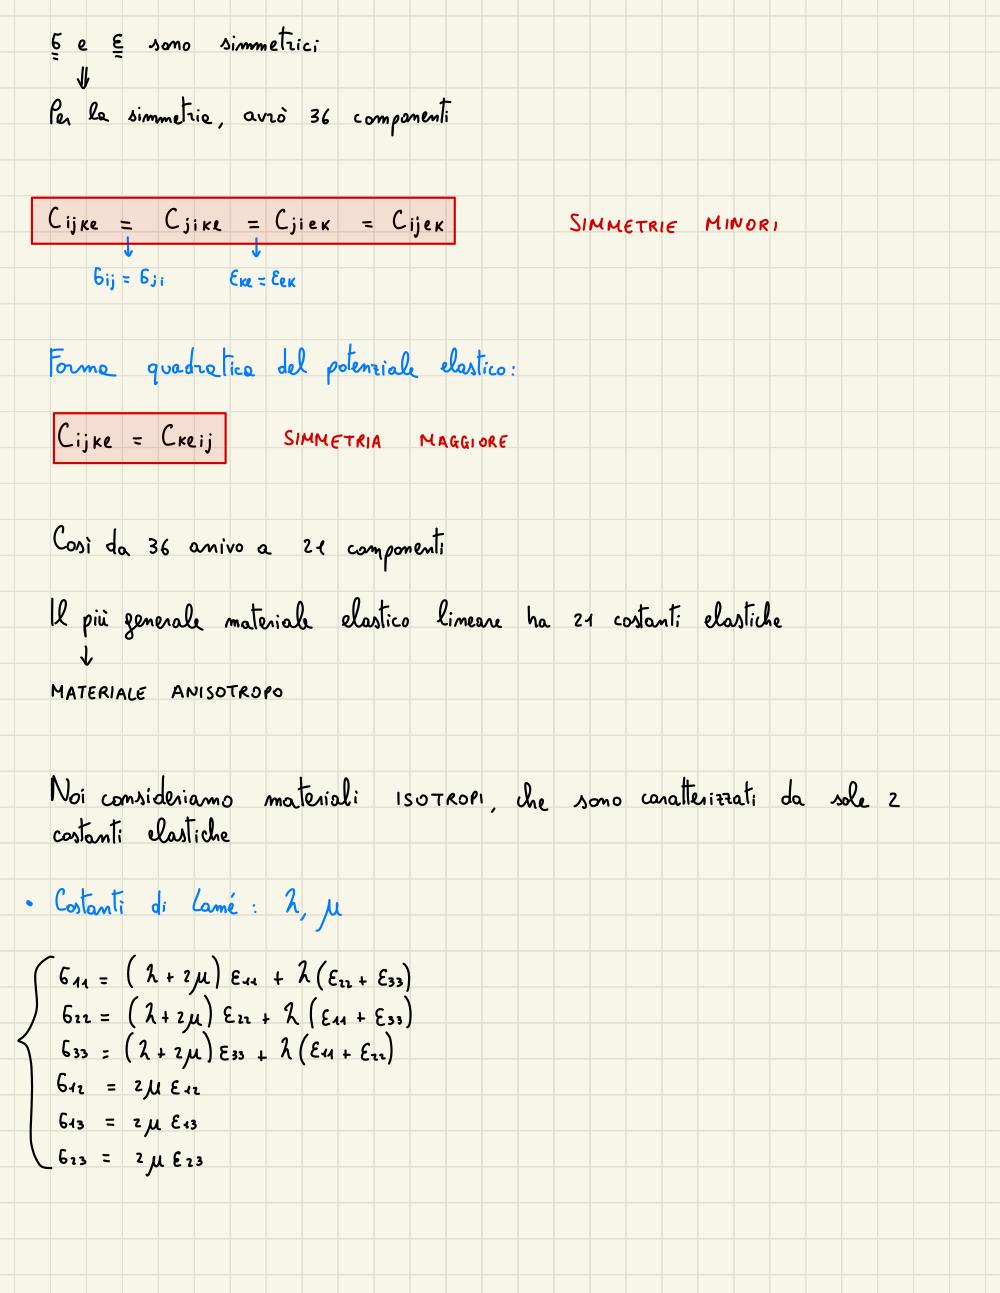 σ e ε sono simmetrici
⇓
Per la simmetria, avrò 36 componenti
Cijkℓ = Cjikℓ = Cjiℓk = Cijℓk SIMMETRIE MINORI
↓ ↓
σij = σji εkℓ = εℓk
Forma quadratica del potenziale elastico:
Cijkℓ = Ckℓij SIMMETRIA MAGGIORE
Così da 36 arrivo a 21 componenti
Il più generale materiale elastico lineare ha 21 costanti elastiche
↓
MATERIALE ANISOTROPO
Noi consideriamo materiali ISOTROPI, che sono caratterizzati da sole 2
costanti elastiche
• Costanti di Lamé: λ, μ
σ11 = (λ + 2μ) ε11 + λ(ε22 + ε33)
σ22 = (λ + 2μ) ε22 + λ(ε11 + ε33)
σ33 = (λ + 2μ) ε33 + λ(ε11 + ε22)
σ12 = 2μ ε12
σ13 = 2μ ε13
σ23 = 2μ ε23